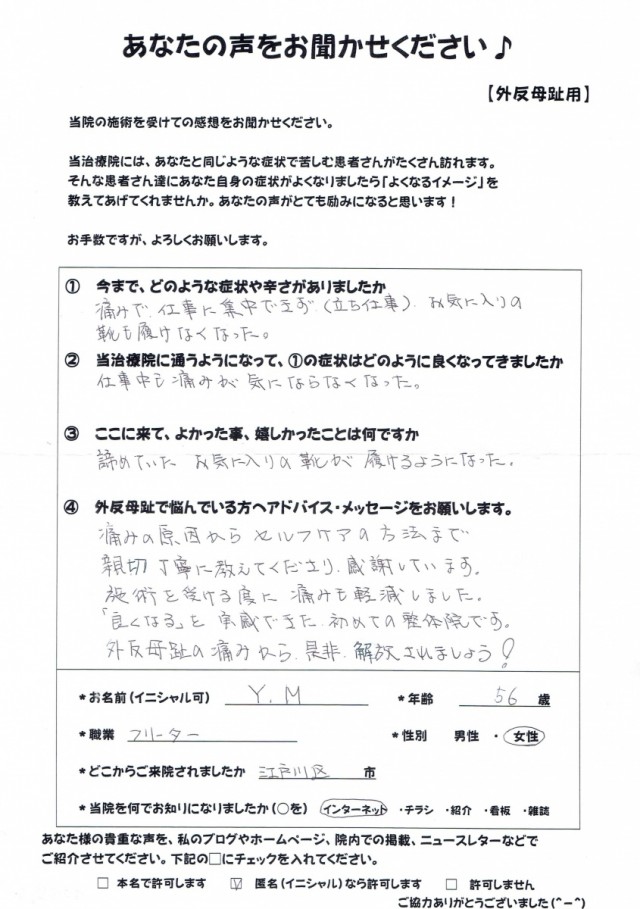 あなたの声をお聞かせください♪
【外反母趾用】
当院の施術を受けての感想をお聞かせください。
当治療院には、あなたと同じような症状で苦しむ患者さんがたくさん訪れます。
そんな患者さん達にあなた自身の症状がよくなりましたら「よくなるイメージ」を
教えてあげてくれませんか。あなたの声がとても励みになると思います！
お手数ですが、よろしくお願いします。
① 今まで、どのような症状や辛さがありましたか
痛みで、仕事に集中できず（立ち仕事）、お気に入りの
靴も履けなくなった。
② 当治療院に通うようになって、①の症状はどのように良くなってきましたか
仕事中も痛みが気にならなくなった。
③ ここに来て、よかった事、嬉しかったことは何ですか
諦めていた お気に入りの靴が 履けるようになった。
④ 外反母趾で悩んでいる方へアドバイス・メッセージをお願いします。
痛みの原因から セルフケアの方法まで
親切丁寧に教えてくださり、感謝しています。
施術を受ける度に 痛みも軽減しました。
「良くなる」を 実感できた、初めての整体院です。
外反母趾の痛みから、是非、解放されましょう！
＊お名前（イニシャル可） Y.M ＊年齢 56 歳
＊職業 フリーター ＊性別 男性 ・ 女性
＊どこからご来院されましたか 江戸川区 市
＊当院を何でお知りになりましたか（○を） インターネット ・チラシ ・紹介 ・看板 ・雑誌
あなた様の貴重な声を、私のブログやホームページ、院内での掲載、ニュースレターなどで
ご紹介させてください。下記の□にチェックを入れてください。
□ 本名で許可します ☑ 匿名（イニシャル）なら許可します □ 許可しません
ご協力ありがとうございました(^-^)